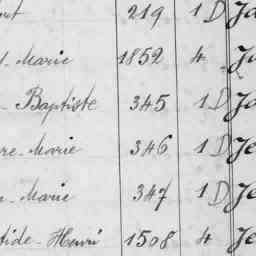 219 1 D
Marie 1852 4
Baptiste 345 1 D
re-Marie 346 1 D Je
Marie 347 1 D Je
tide-Henri 1508 4 Je